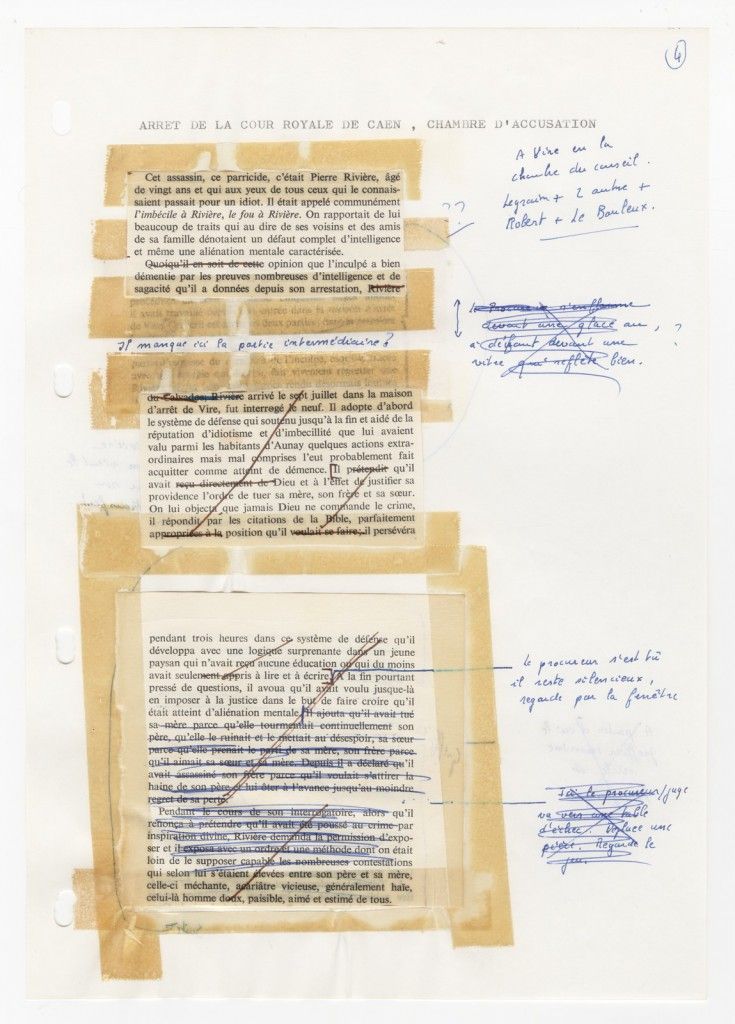 4
ARRET DE LA COUR ROYALE DE CAEN , CHAMBRE D'ACCUSATION
A Vire en la
chambre du conseil.
Legrain + 2 autre +
Robert + de Bouleux.
Cet assassin, ce parricide, c'était Pierre Rivière, âgé
de vingt ans et qui aux yeux de tous ceux qui le connais-
saient passait pour un idiot. Il était appelé communément
l'imbécile à Rivière, le fou à Rivière. On rapportait de lui
beaucoup de traits qui au dire de ses voisins et des amis
de sa famille dénotaient un défaut complet d'intelligence
et même une aliénation mentale caractérisée.
Quoiqu'il en soit de cette opinion que l'inculpé a bien
démentie par les preuves nombreuses d'intelligence et de
sagacité qu'il a données depuis son arrestation, Rivière
??
le Procureur s'enflamme
devant une glace ou,
à défaut devant une
vitre qui reflète bien.
?
Il manque ici la partie intermédiaire ?
du Calvados, Rivière arrivé le sept juillet dans la maison
d'arrêt de Vire, fut interrogé le neuf. Il adopte d'abord
le système de défense qui soutenu jusqu'à la fin et aidé de la
réputation d'idiotisme et d'imbecillité que lui avaient
valu parmi les habitants d'Aunay quelques actions extra-
ordinaires mais mal comprises l'eut probablement fait
acquitter comme atteint de démence. Il prétendit qu'il
avait reçu directement de Dieu et à l'effet de justifier sa
providence l'ordre de tuer sa mère, son frère et sa sœur.
On lui objecta que jamais Dieu ne commande le crime,
il répondit par les citations de la Bible, parfaitement
appropriées à la position qu'il voulait se faire; il persévéra
pendant trois heures dans ce système de défense qu'il
développa avec une logique surprenante dans un jeune
paysan qui n'avait reçu aucune éducation ou qui du moins
avait seulement appris à lire et à écrire. A la fin pourtant
pressé de questions, il avoua qu'il avait voulu jusque-là
en imposer à la justice dans le but de faire croire qu'il
était atteint d'aliénation mentale. Il ajouta qu'il avait tué
sa mère parce qu'elle tourmentait continuellement son
père, qu'elle le ruinait et le mettait au désespoir, sa sœur
parce qu'elle prenait le parti de sa mère, son frère parce
qu'il aimait sa sœur et sa mère. Depuis il a déclaré qu'il
avait assassiné son frère parce qu'il voulait s'attirer la
haine de son père et lui ôter à l'avance jusqu'au moindre
regret de sa perte.
Pendant le cours de son interrogatoire, alors qu'il
renonça à prétendre qu'il avait été poussé au crime par
inspiration divine, Rivière demanda la permission d'expo-
ser et il exposa avec un ordre et une méthode dont on était
loin de le supposer capable les nombreuses contestations
qui selon lui s'étaient élevées entre son père et sa mère,
celle-ci méchante, acariâtre vicieuse, généralement haïe,
celui-là homme doux, paisible, aimé et estimé de tous.
le procureur s'est tû
il reste silencieux,
regarde par la fenêtre
Ici le procureur/juge
va vers une table
d'échec. Déplace une
pièce. Regarde le
jeu.